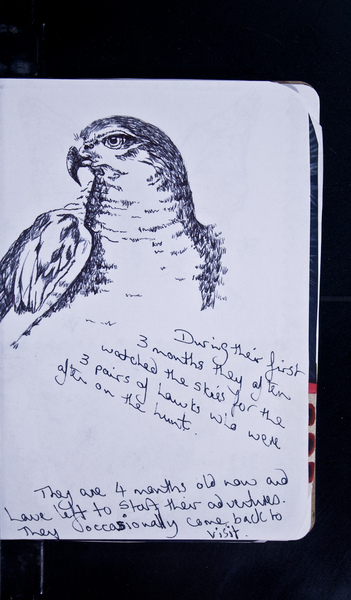 During their first
3 months they often
watched the skies for the
3 pairs of hawks who were
often on the hunt.
They are 4 months old now and
have left to start their adventures.
They occasionally come back to
visit.